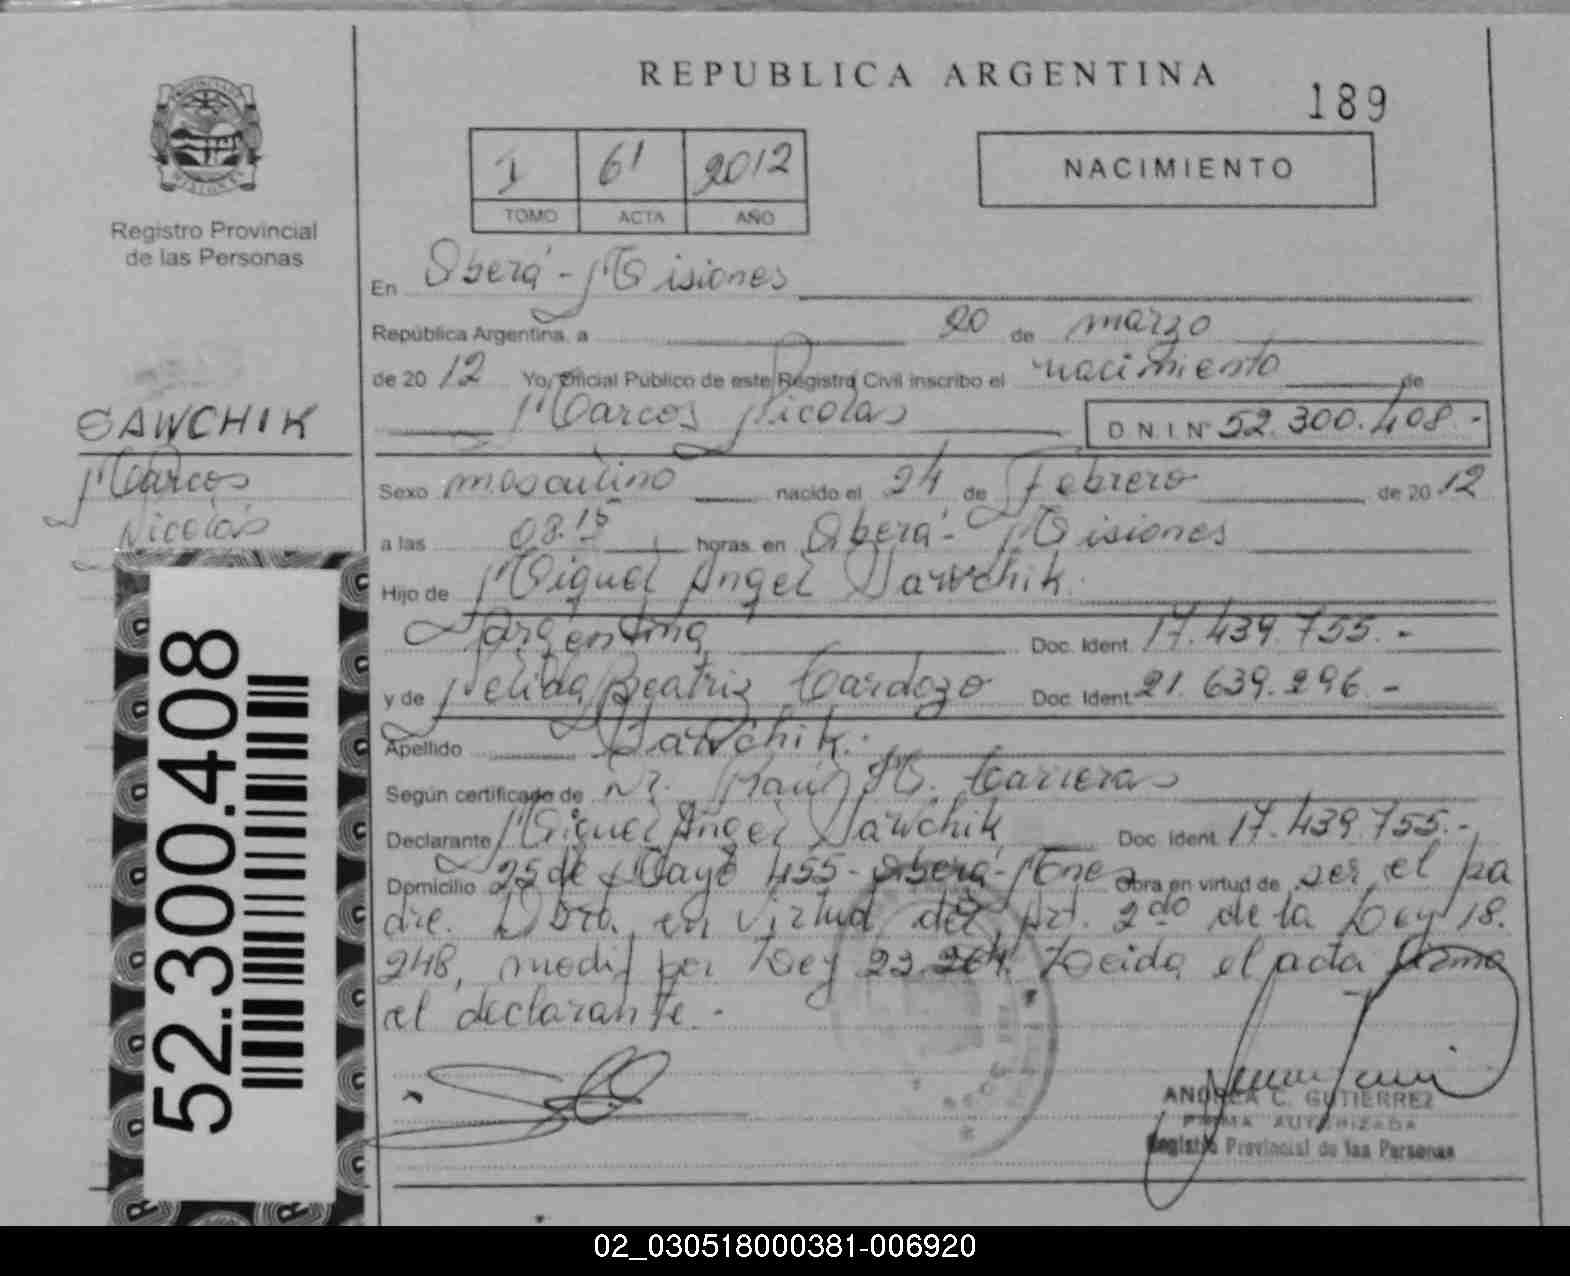 REPUBLICA ARGENTINA
189
I 61 2012
TOMO ACTA AÑO
NACIMIENTO
Registro Provincial
de las Personas
En Oberá - Misiones
República Argentina, a 20 de marzo
de 2012 Yo, Oficial Público de este Registro Civil inscribo el nacimiento de
Marcos Nicolas D.N.I.Nº 52.300.408.-
SAWCHIK
Marcos
Nicolás
Sexo masculino nacido el 24 de Febrero de 2012
a las 08.15 horas, en Oberá - Misiones
Hijo de Miguel Angel Sawchik.
Argentina Doc. Ident. 17.439.755.-
y de Nélida Beatriz Cardozo Doc. Ident. 21.639.296.-
Apellido Sawchik.-
Según certificado de Dr. Raúl M. Carreras
Declarante Miguel Angel Sawchik Doc. Ident. 17.439.755.-
Domicilio 25 de Mayo 455 - Oberá - Mnes Obra en virtud de ser el pa
dre. Obra, en virtud del Art. 2do de la Ley 18.
248, modif por Ley 23.264. Leida el acta firma
el declarante.-
52.300.408
ANDREA C. GUTIERREZ
FIRMA AUTORIZADA
Registro Provincial de las Personas
02_030518000381-006920